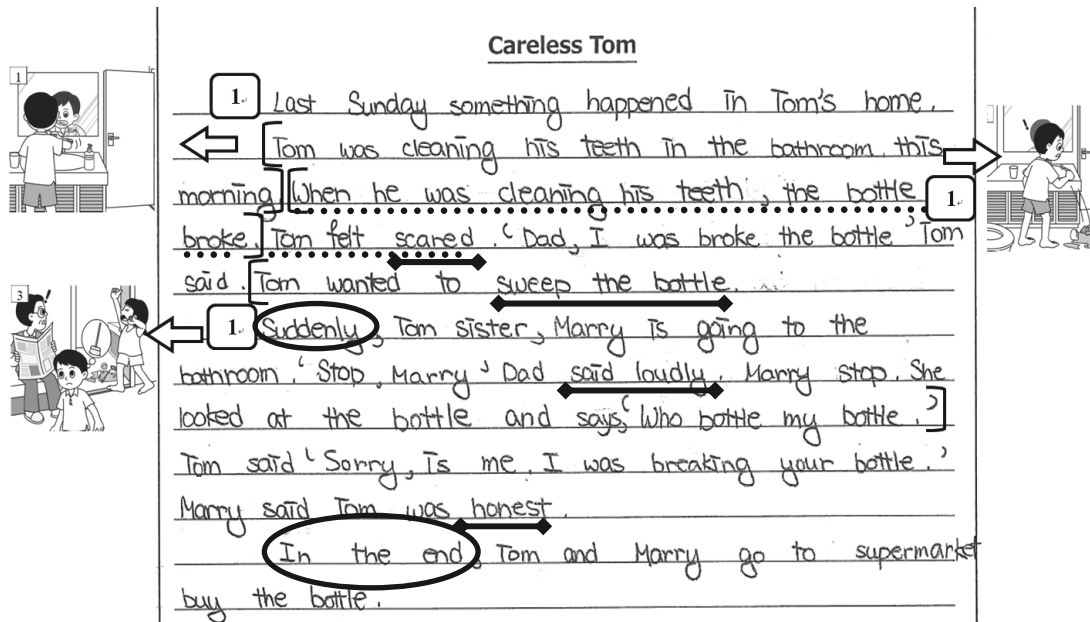 Careless Tom
1
1 Last Sunday something happened in Tom's home.
Tom was cleaning his teeth in the bathroom this
morning When he was cleaning his teeth, the bottle 1
broke. Tom felt scared. 'Dad, I was broke the bottle' Tom
said. Tom wanted to sweep the bottle.
3
1 Suddenly, Tom sister, Marry is going to the
bathroom. 'Stop, Marry' Dad said loudly. Marry stop. She
looked at the bottle and says, 'Who bottle my bottle.'
Tom said 'Sorry, is me. I was breaking your bottle.'
Marry said Tom was honest.
In the end, Tom and Marry go to supermarket
buy the bottle.